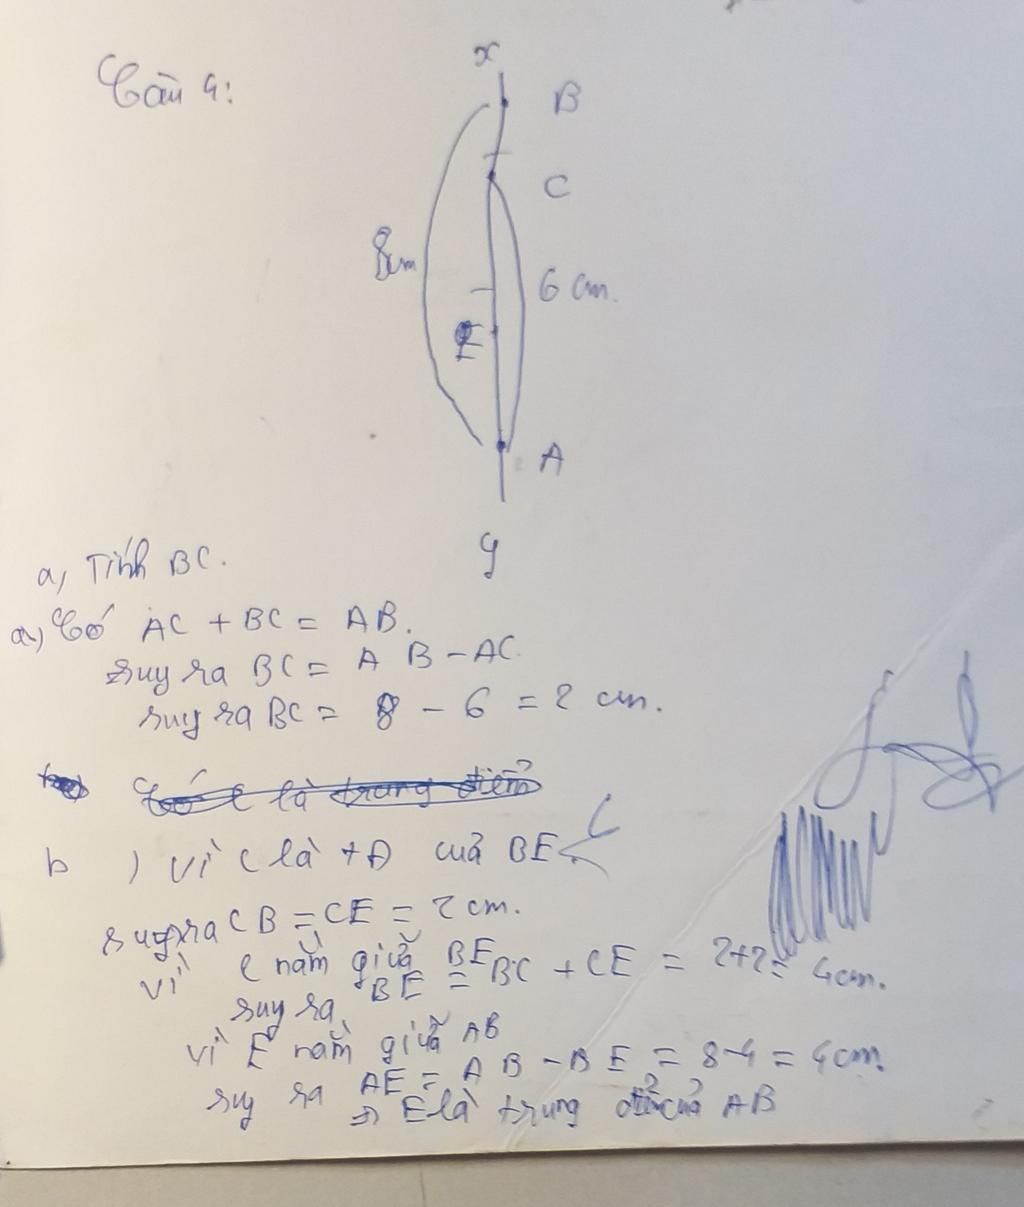 Câu 4:
x
B
C
8cm
6 cm.
E
A
y
a, Tính BC.
a,) Có AC + BC = AB.
suy ra BC = AB - AC.
suy ra BC = 8 - 6 = 2 cm.
Có C là trung điểm
b) Vì C là TĐ của BE
suy ra CB = CE = 2 cm.
Vì C nằm giữa BE
suy ra BE = BC + CE = 2+2 = 4cm.
Vì E nằm giữa AB
suy ra AE = AB - BE = 8-4 = 4cm.
=> E là trung điểm của AB